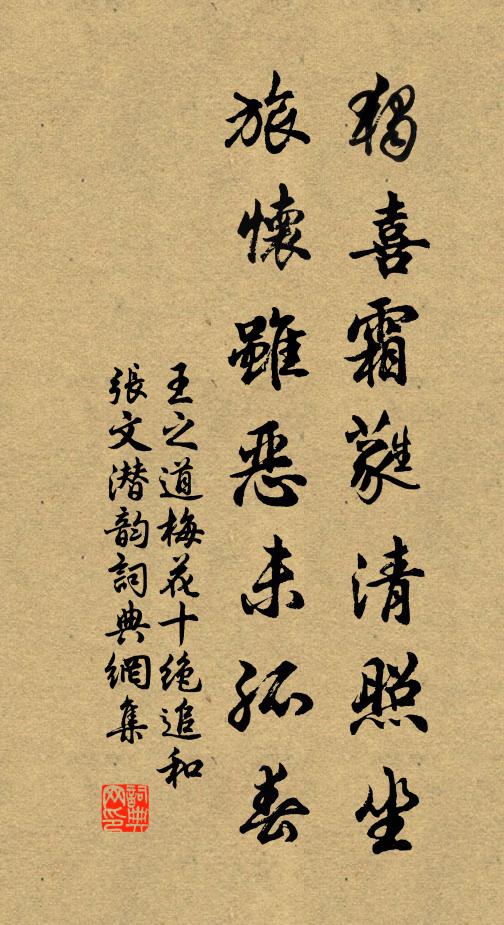 獨喜霜蕤清照坐
旅懷雖惡未孤春
王之道梅花十絶追和
張文潛韵詞典網集
詞典
网印